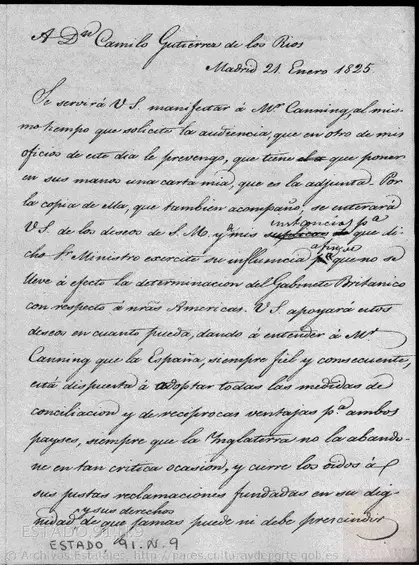 A Dn Camilo Gutiérrez de los Rios
Madrid 21 Enero 1825.
Se servirá V.S. manifestar á Mr. Canning, al mis-
mo tiempo que solicite la audiencia, que en otro de mis
oficios de este dia le prevengo, que tiene que poner
en sus manos una carta mia, que es la adjunta. Por
la copia de ella, que tambien acompaño, se enterará
instancias pa
V.S. de los deseos de S.M. y de mis suplicas que di-
a fin de
cho Sr. Ministro exercite su influencia pa que no se
lleve á efecto la determinacion del Gabinete Britanico
con respecto á nras Americas. V.S. apoyará estos
deseos en cuanto pueda, dando á entender á Mr.
Canning que la España, siempre fiel y consecuente,
está dispuesta á adoptar todas las medidas de
conciliacion y de reciprocas ventajas pa ambos
payses, siempre que la Inglaterra no la abando-
ne en tan critica ocasion, y cierre los oidos á
sus justas reclamaciones fundadas en su dig-
y sus derechos
nidad de que jamas puede ni debe prescindir
ESTADO 91 N 9
ESTADO 91. N. 9
© Archivos Estatales, http://pares.culturaydeporte.gob.es